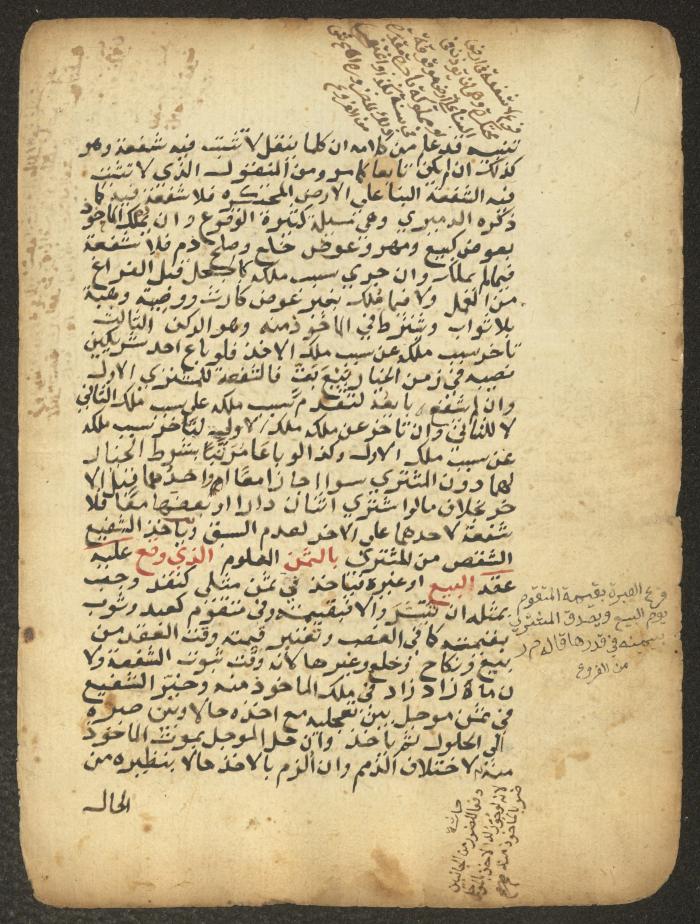 تنبيه قد علم من كلامه ان كلما ينقل لا تثبت فيه شفعة وهو
كذلك ان لم يكن تابعا كما مر ومن المنقول الذي لا تثبت
فيه الشفعة البنا على الارض المحتكره فلا شفعة فيه كما
ذكره الدميري وهي مسيلة كثيرة الوقوع وان يملك الماخوذ
بعوض كبيع ومهر وعوض خلع وصلح دم فلا شفعة
فيما لم يملك وان جري سبب ملكه كالجعل قبل الفراغ
من العمل ولا فيما ملك بغير عوض كارث ووصية وهبة
بلا ثواب وشرط في الماخوذ منه وهو الركن الثالث
تاخر سبب ملكه عن سبب ملك الاخذ فلو باع احد شريكين
نصيبه في زمن الخيار بيع بت فالشفعة للمشتري الاول
وان لم يشفع بايعه لتقدم سبب ملكه على سبب ملك الثاني
لا للثاني وان تاخر عن ملكه ملك الاول لتاخر سبب ملكه
عن سبب ملك الاول وكذا لو باعا مرتبا بشرط الخيار
لهما دون المشتري سوا اجازا معا او احدهما قبل الا
خر بخلاف ما لو اشترى اثنان دارا او بعضها معا فلا
شفعة لاحدهما على الاخر لعدم السبق وياخذ الشفيع
الشقص من المشتري بالثمن المعلوم الذي وقع عليه
عقد البيع او غيره فياخذ في ثمن مثلي كنقد وحب
بمثله ان تيسر والا فبقيمته وفي متقوم كعبد وثوب
بقيمته كما في الغصب وتعتبر قيمته وقت العقد من
بيع ونكاح وخلع وغيرها لانه وقت ثبوت الشفعة ولا
ن ما زاد زاد في ملك الماخوذ منه وخير الشفيع
في ثمن موجل بين تعجيله مع اخذه حالا وبين صبره
الي الحلول ثم ياخذ وان حل الموجل بموت الماخوذ
منه لاختلاف الذمم وان الزم بالاخذ حالا بنظيره من
الحال
فرع الصبرة بقيمة المتقوم
يوم البيع ويصدق المشتري
بيمينه في قدرها قاله م ر
من الفروع